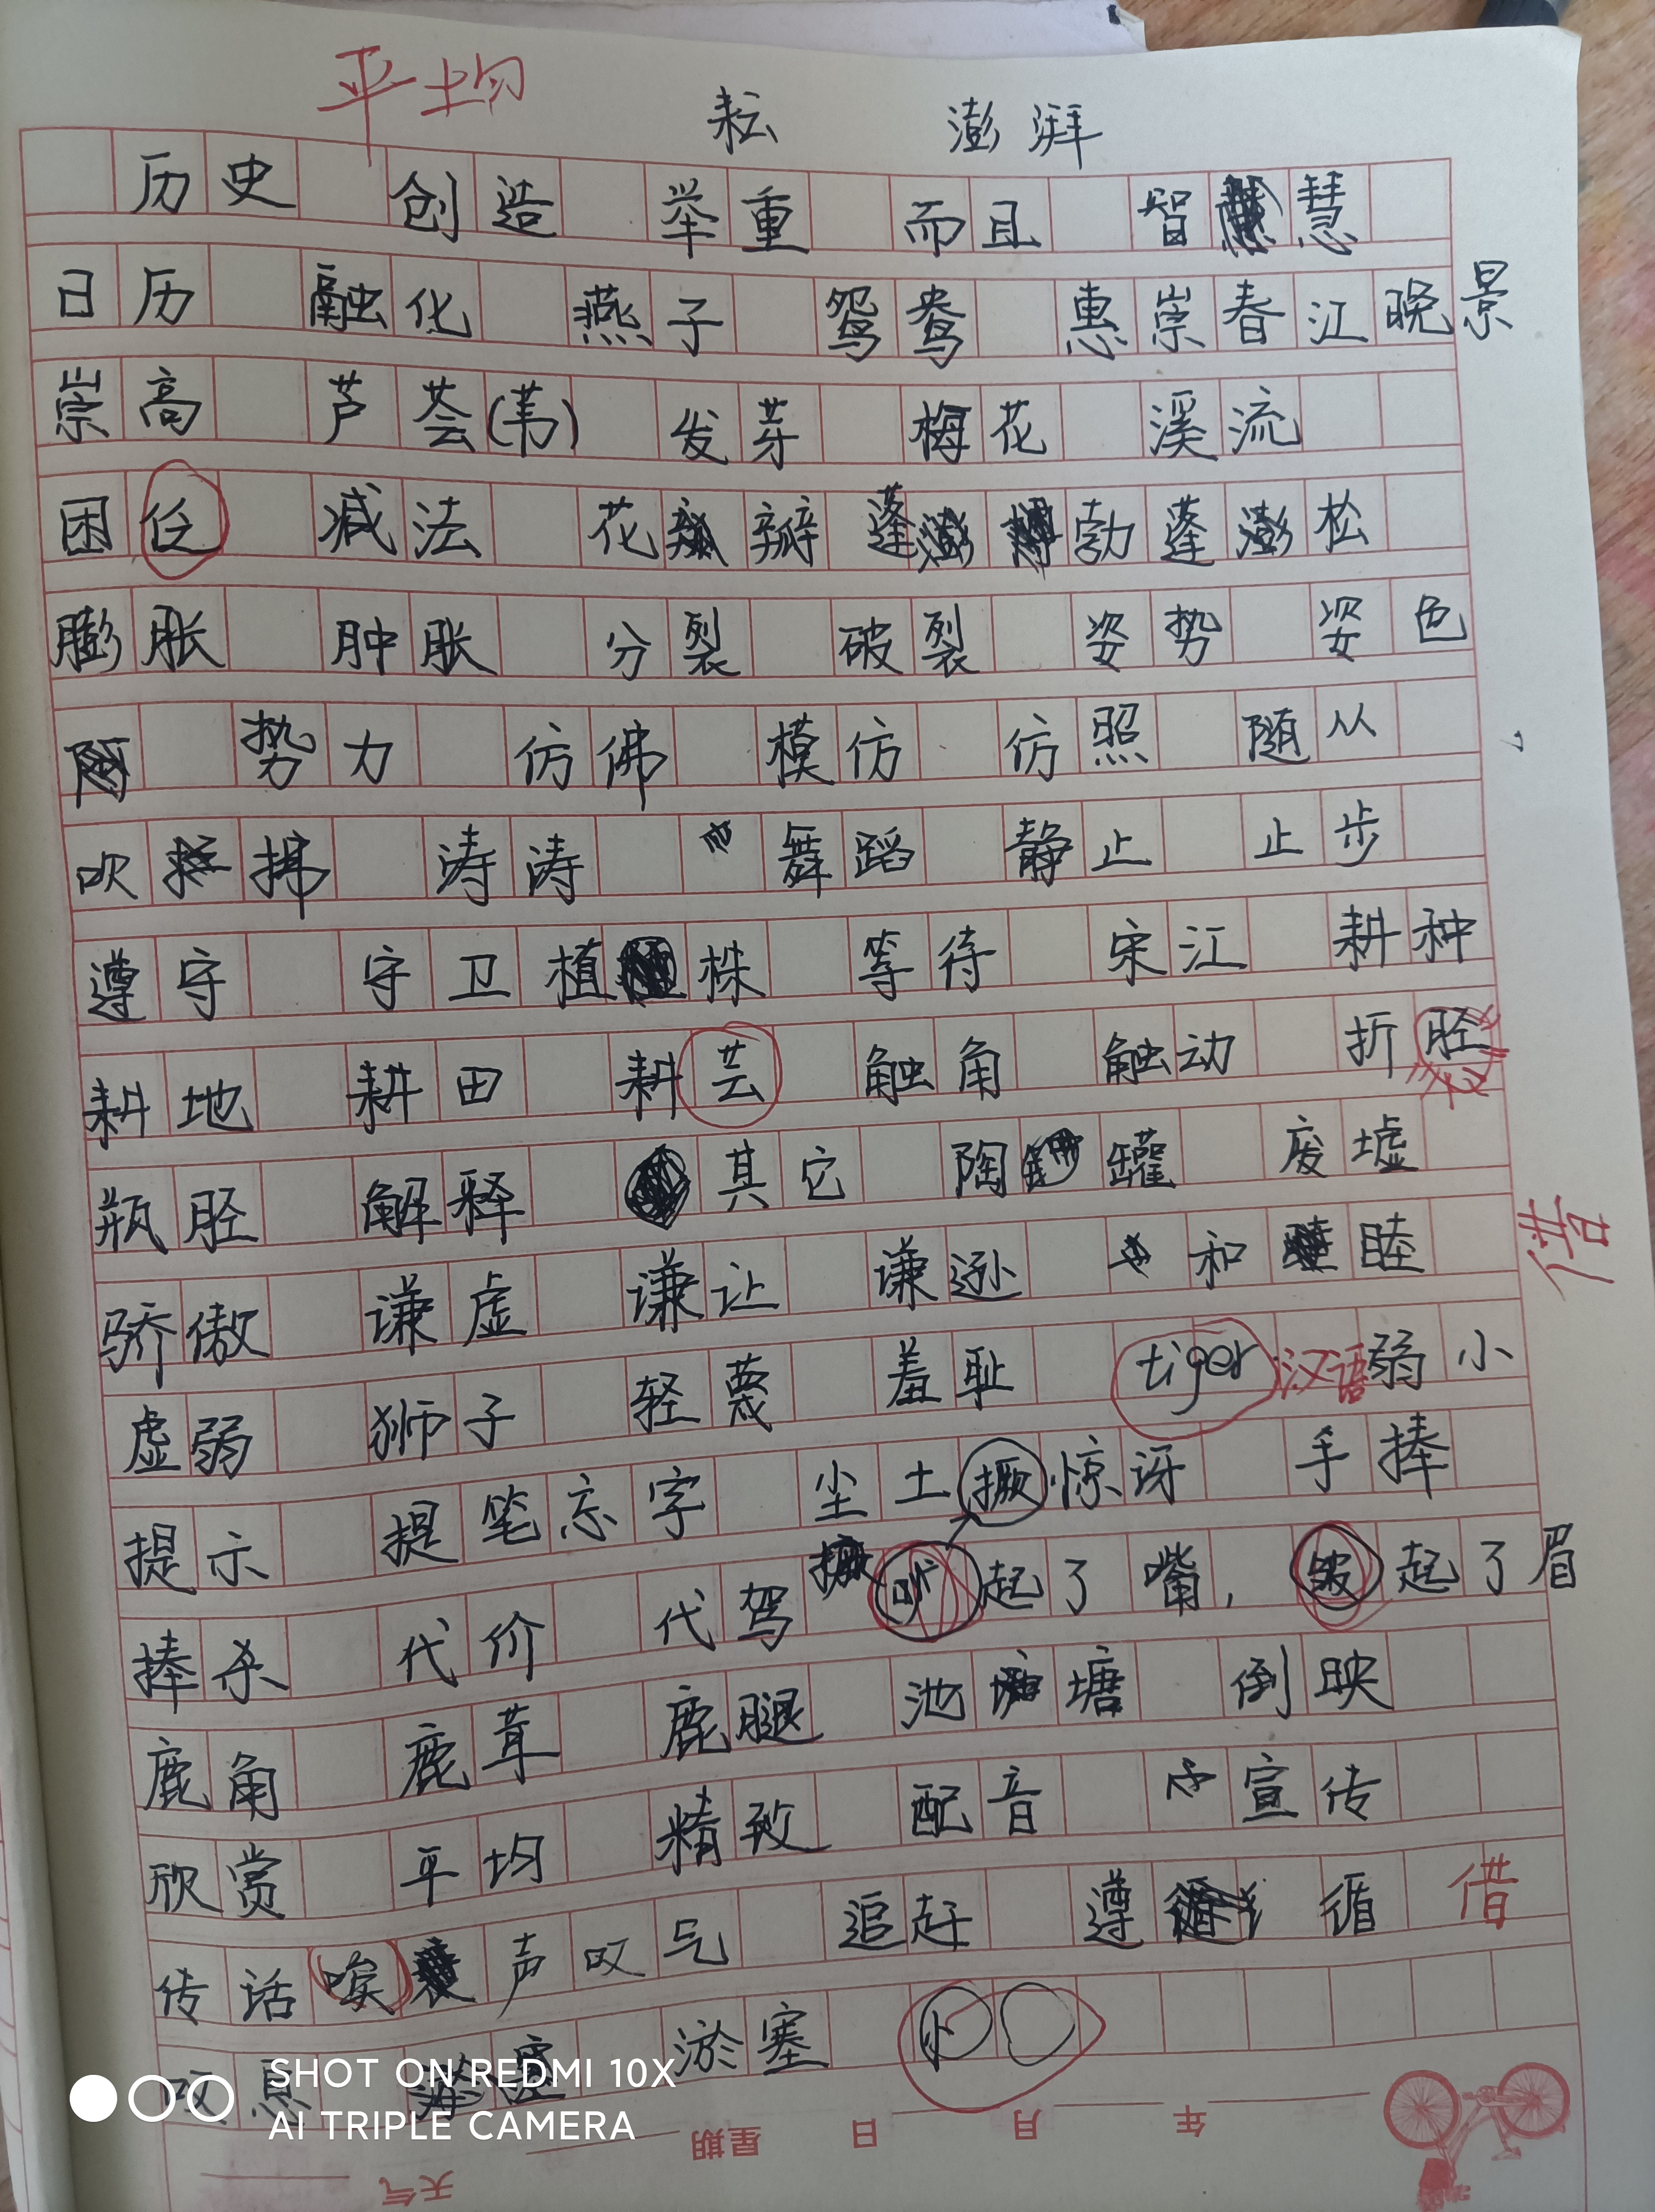 平均
耘 澎湃
历史 创造 举重 而且 智慧
日历 融化 燕子 鸳鸯 惠崇春江晚景
崇高 芦荟(苇) 发芽 梅花 溪流
困 减法 花瓣 蓬勃 蓬松
膨胀 肿胀 分裂 破裂 姿势 姿色
势力 仿佛 模仿 仿照 随从
吹拂 涛涛 舞蹈 静止 止步
遵守 守卫 植株 等待 宋江 耕种
耕地 耕田 耕芸 触角 触动 折胫
瓶胫 解释 其它 陶罐 废墟
骄傲 谦虚 谦让 谦逊 和睦
借
虚弱 狮子 轻蔑 羞耻 tiger 汉语 弱小
提示 提笔忘字 尘土 撅 惊讶 手捧
捧杀 代价 代驾 撅 起了嘴, 皱起了眉
鹿角 鹿茸 鹿腿 池塘 倒映
欣赏 平均 精致 配音 宣传
传话 唉声叹气 追赶 遵循 借
叹息 淤塞
SHOT ON REDMI 10X
AI TRIPLE CAMERA
年 月 日 星期
天气